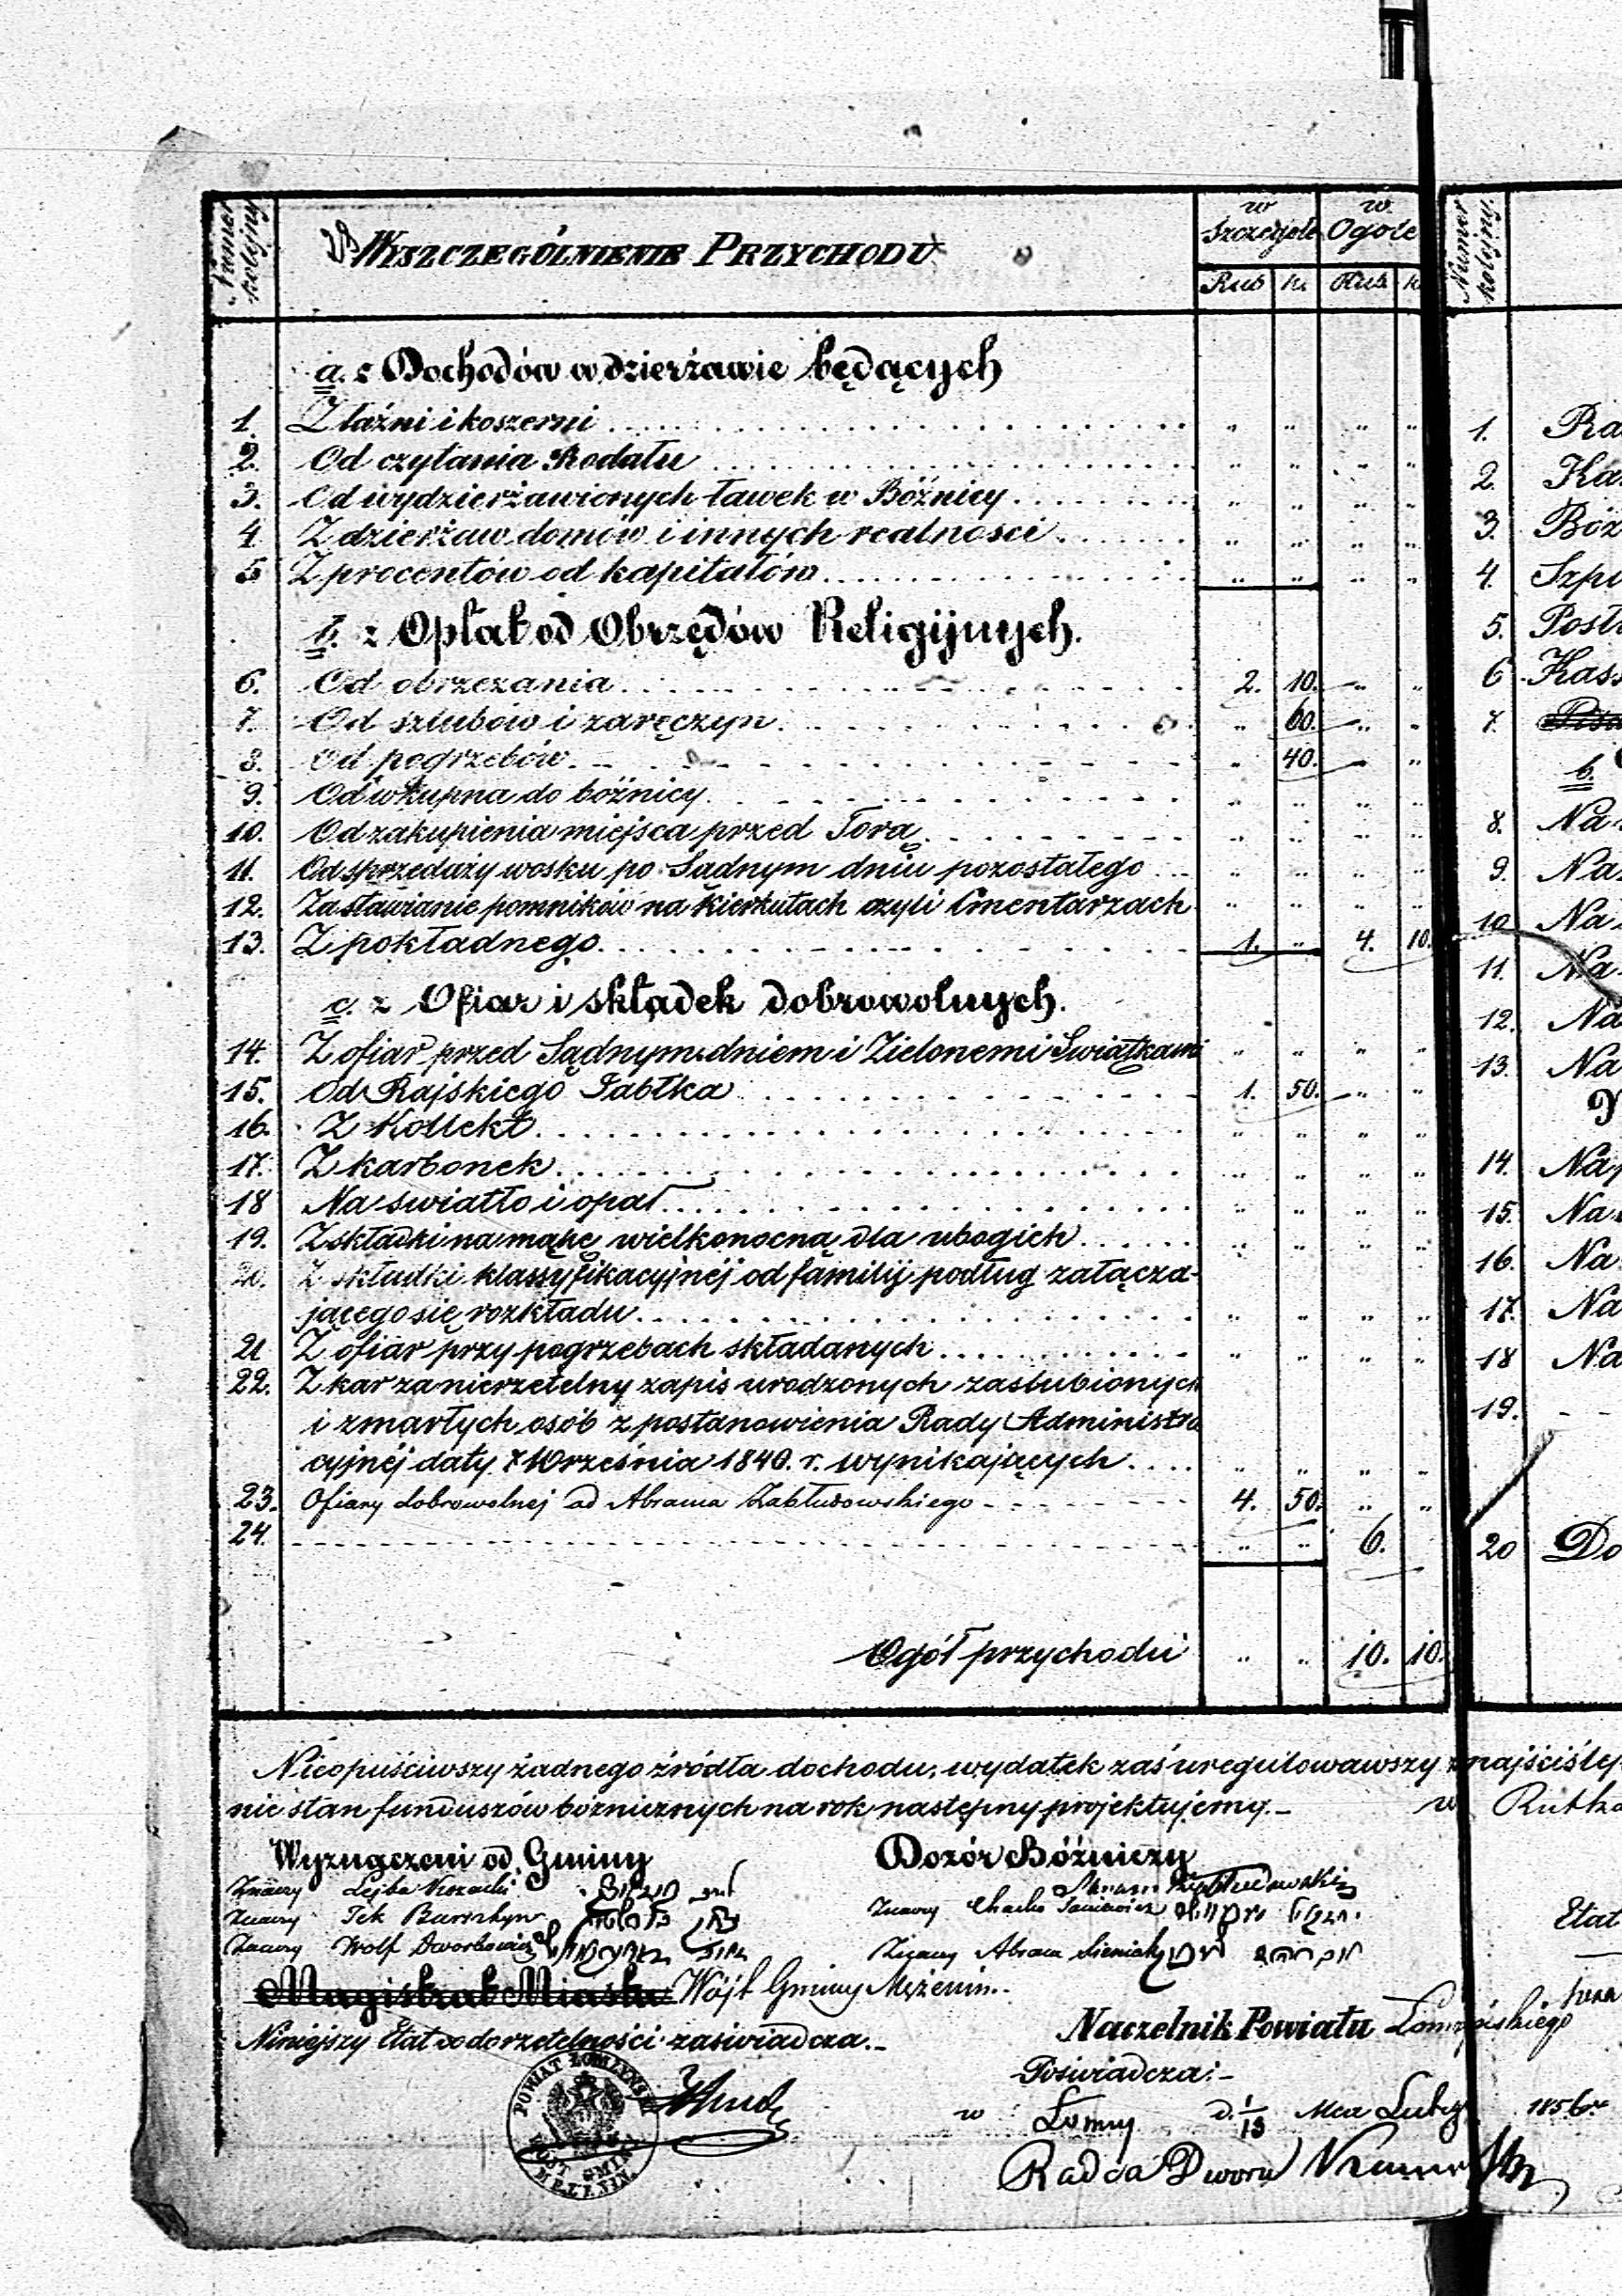 Numer kolejny
WYSZCZEGÓLNIENIE PRZYCHODU
w Szczególe w Ogóle
Rub k. Rub. k
a. z Dochodów w dzierżawie będących
1. Z łaźni i koszerni
2. Od czytania Rodału
3. Od wydzierżawionych ławek w Bóżnicy
4. Z dzierżaw domów i innych realności
5 Z procentów od kapitałów
b. z Opłat od Obrzędów Religijnych.
6. Od obrzezania 2. 10.
7. Od szlubów i zaręczyn 60.
8. Od pogrzebów 40.
9. Od wkupna do bóżnicy
10. Od zakupienia miejsca przed Torą
11. Od sprzedaży wosku po Sądnym dniu pozostałego
12. Za stawianie pomników na kierkutach czyli Cmentarzach
13. Z pokładnego 1. 4. 10.
c. z Ofiar i składek dobrowolnych.
14. Z ofiar przed Sądnym dniem i Zielonemi Swiątkami
15. Od Rajskiego Jabłka 1. 50.
16. Z Kollekt
17. Z karbonek
18 Na swiatło i opał
19. Z składki na mąkę wielkonocną dla ubogich
20. Z składki klassyfikacyjnéj od familij podług załącza-
jącego się rozkładu
21 Z ofiar przy pogrzebach składanych
22. Z kar za nierzetelny zapis urodzonych zaslubionych
i zmarłych osób z postanowienia Rady Administra
cyjnéj daty 7 Września 1840. r. wynikających
23. Ofiary dobrowolnej od Abrama Zabłudowskiego 4. 50.
24. 6.
Ogół przychodu 10. 10.
Nieopuściwszy żadnego źródła dochodu, wydatek zaś uregulowawszy najściślej
nie stan funduszów bóżnicznych na rok następny projektujemy.
w Rutka
Wyznaczeni od Gminy Dozór Bóżniczy
Znaczy Lejba
Znaczy Wolf
Znaczy Abram
Magistrat Miasta Wójt Gminy Mężenin.
Niniejszy Etat co do rzetelności zaświadcza.
Naczelnik Powiatu Łomżyńskiego
Poświadcza:
w Łomży d. 1/13 Mca Lutego 1856 r
Radca Dworu
POWIAT ŁOMŻYŃSKI
WÓJT GMINY
MĘŻENIN
Numer kolejny
1.
2.
3.
4.
5.
6
7.
b.
8. Na
9. Na
10. Na
11. Na
12. Na
13. Na
14. Na
15. Na
16. Na
17. Na
18 Na
19.
20 Do
Etat